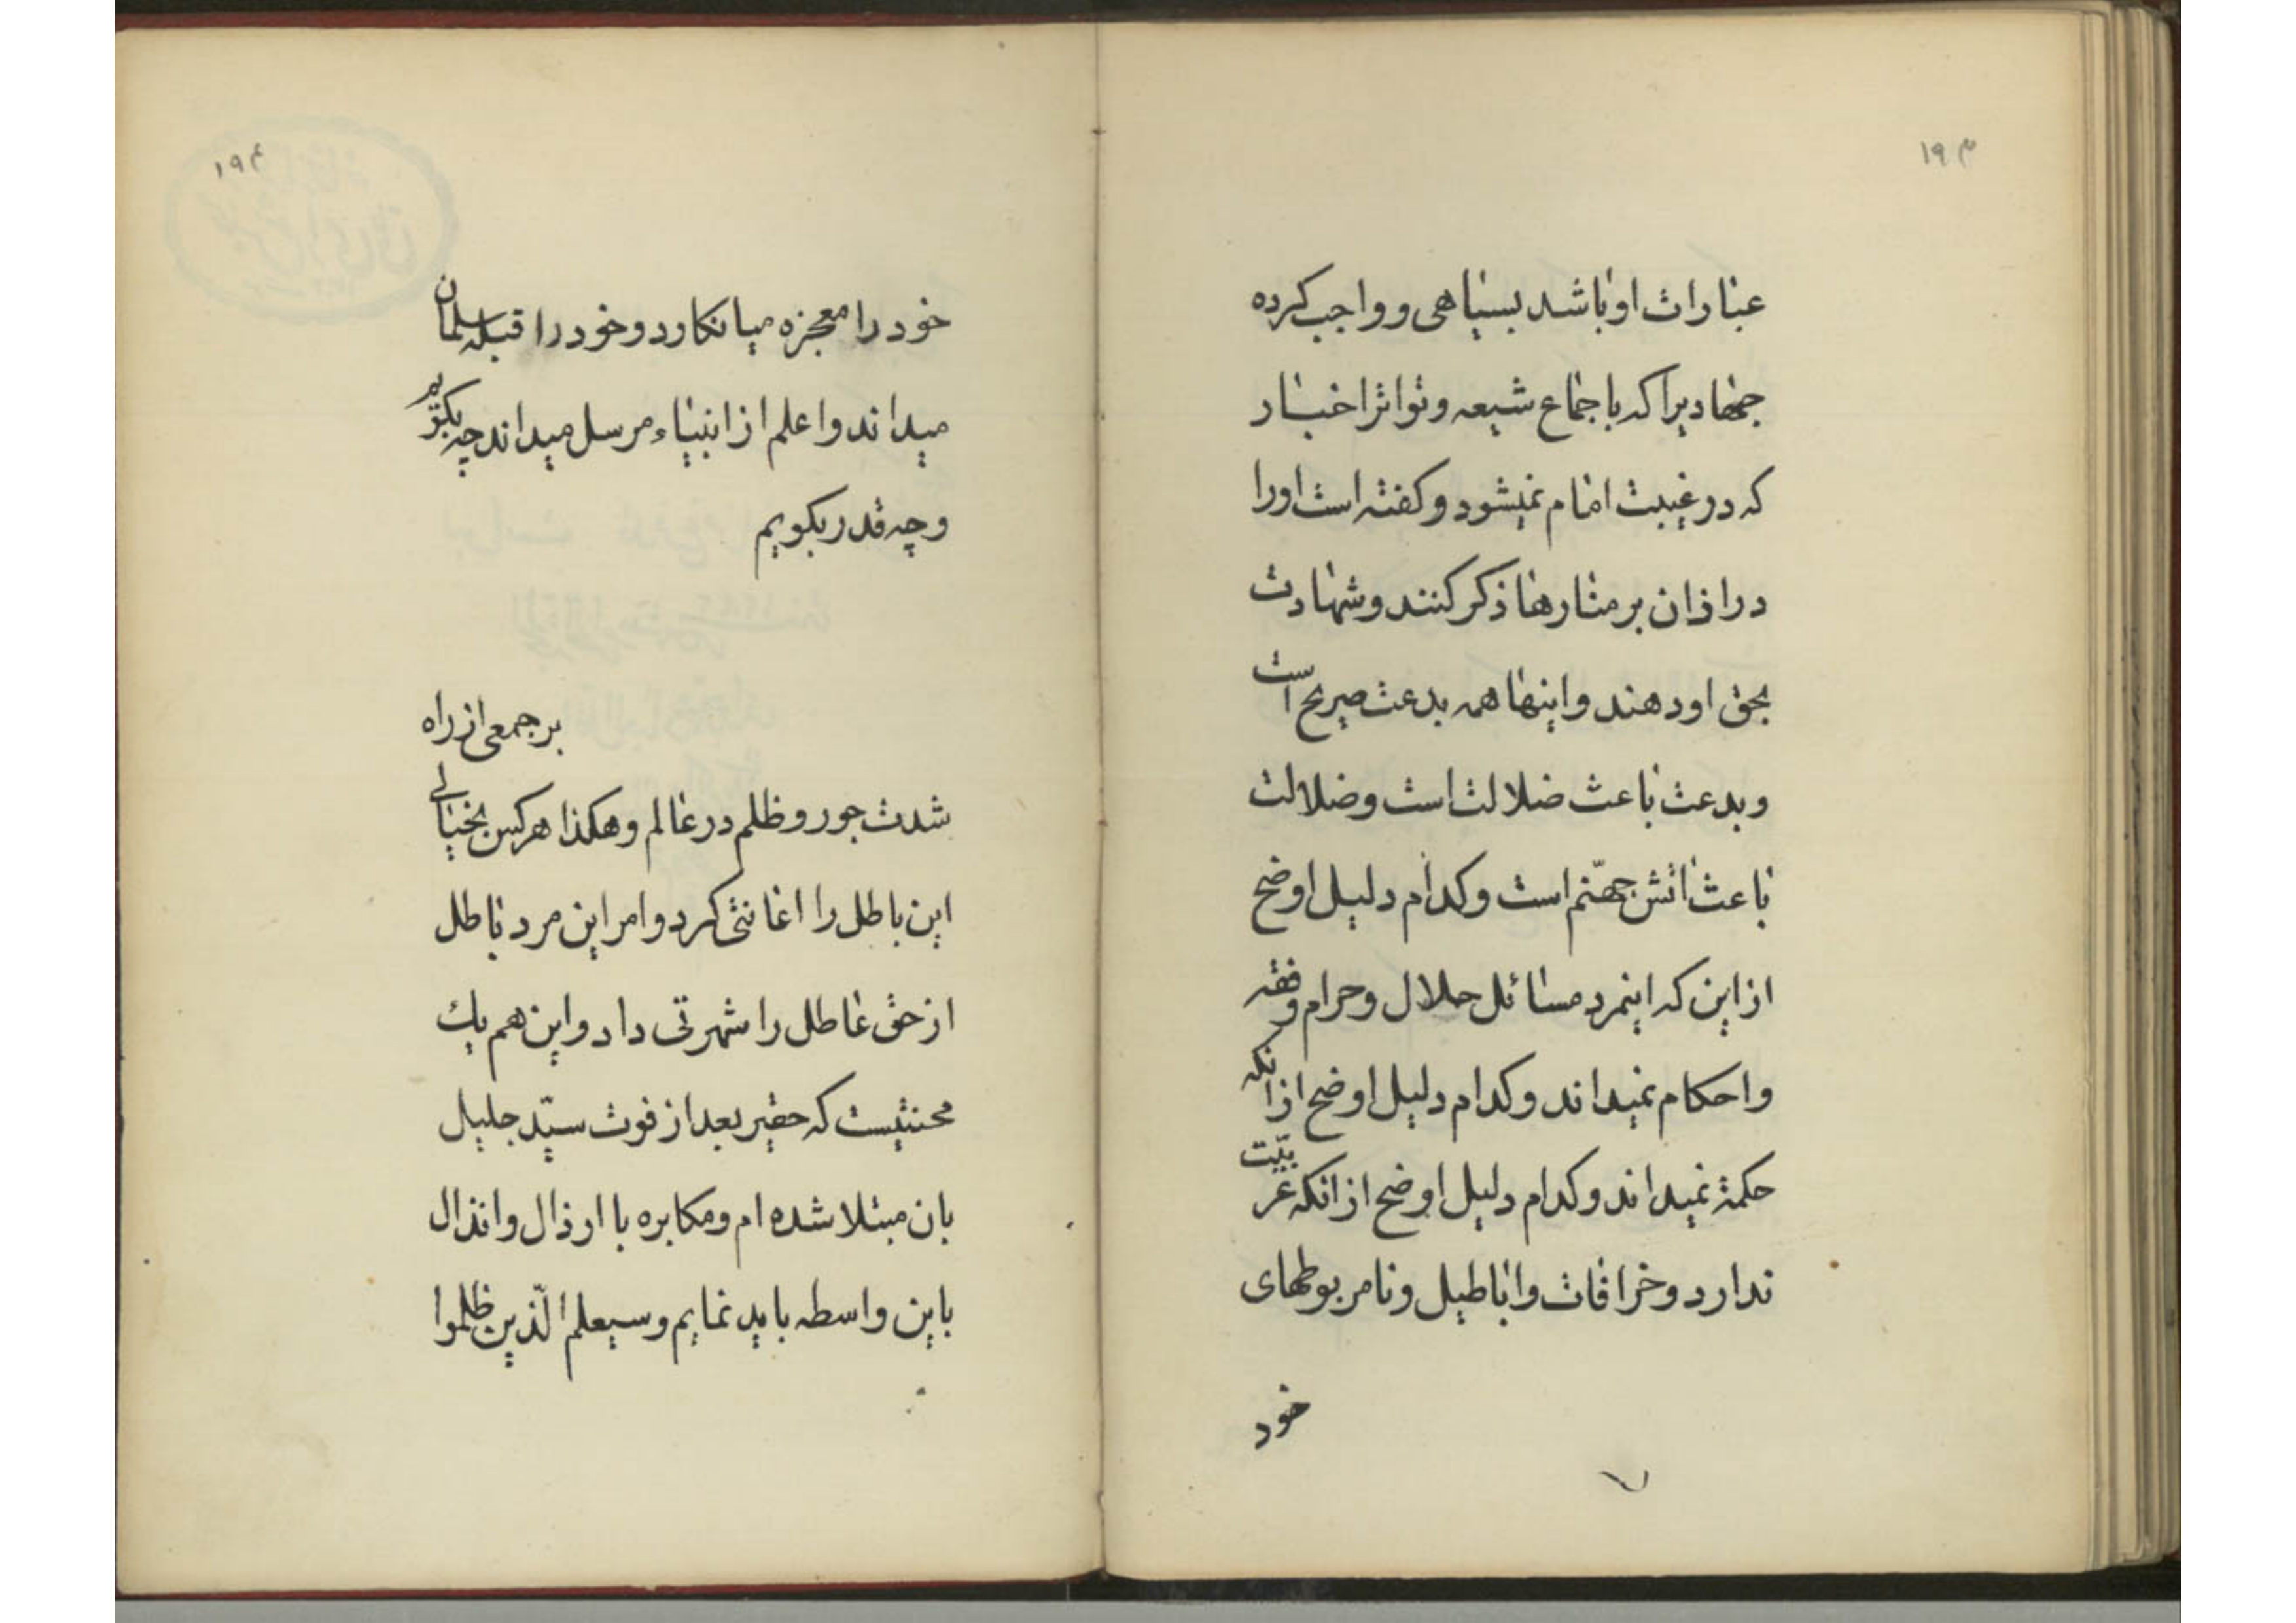 ۱۹۳
عبارات او باشد بسیاهی و واجب کرده
جهادیرا که باجماع شیعه و تواتر اخبار
که در غیبت امام نمیشود و کفته است اورا
در اذان بر منارها ذکر کنند و شهادت
بحق او دهند و اینها همه بدعت صریح است
و بدعت باعث ضلالت است و ضلالت
باعث اتش جهنّم است و کدام دلیل اوضح
از این که اینمرد مسائل حلال و حرام و فقه
و احکام نمیداند و کدام دلیل اوضح از انکه
حکمة نمیداند و کدام دلیل اوضح از انکه عربیّت
ندارد و خرافات و اباطیل و نامربوطهای
خود
۱۹۴
خود را معجزه میانکارد و خود را قبله سلمان
میداند و اعلم از انبیاء مرسل میداند چه بکویم
و چه قدر بکویم
بر جمعی از راه
شدت جور و ظلم در عالم و هکذا هر کس بخیالی
این باطل را اعانتی کرد و امر این مرد باطل
از حق عاطل را شهرتی داد و این هم یك
محنتیست که حقیر بعد از فوت سیّد جلیل
بان مبتلا شده ام و مکابره با ارذال و انذال
باین واسطه باید نمایم و سیعلم الّذین ظلموا